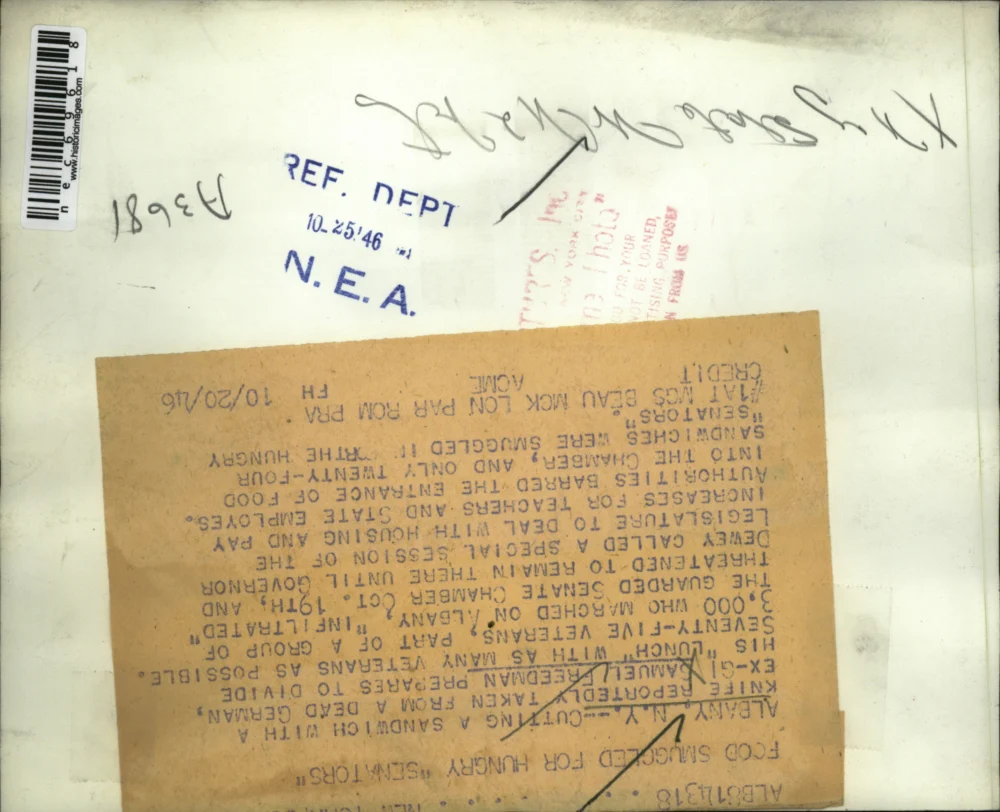 n e c 6 9 6 1 8
www.historicimages.com
A3681
REF. DEPT
10-25-46
N. E. A.
NEW YORK CITY
FOR YOUR
NOT BE LOANED,
FROM US
ALB814318
FOOD SMUGGLED FOR HUNGRY "SENATORS"
ALBANY, N.Y.--CUTTING A SANDWICH WITH A
KNIFE REPORTEDLY TAKEN FROM A DEAD GERMAN,
EX-GI SAMUEL FREEDMAN PREPARES TO DIVIDE
HIS "LUNCH" WITH AS MANY VETERANS AS POSSIBLE.
SEVENTY-FIVE VETERANS, PART OF A GROUP OF
3,000 WHO MARCHED ON ALBANY, "INFILTRATED"
THE GUARDED SENATE CHAMBER OCT. 19TH, AND
THREATENED TO REMAIN THERE UNTIL GOVERNOR
DEWEY CALLED A SPECIAL SESSION OF THE
LEGISLATURE TO DEAL WITH HOUSING AND PAY
INCREASES FOR TEACHERS AND STATE EMPLOYES.
AUTHORITIES BARRED THE ENTRANCE OF FOOD
INTO THE CHAMBER, AND ONLY TWENTY-FOUR
SANDWICHES WERE SMUGGLED THE HUNGRY
"SENATORS".
#1AT MGS BEAU MCK LON PAR ROM PRA
CREDIT ACME FH 10/20/46